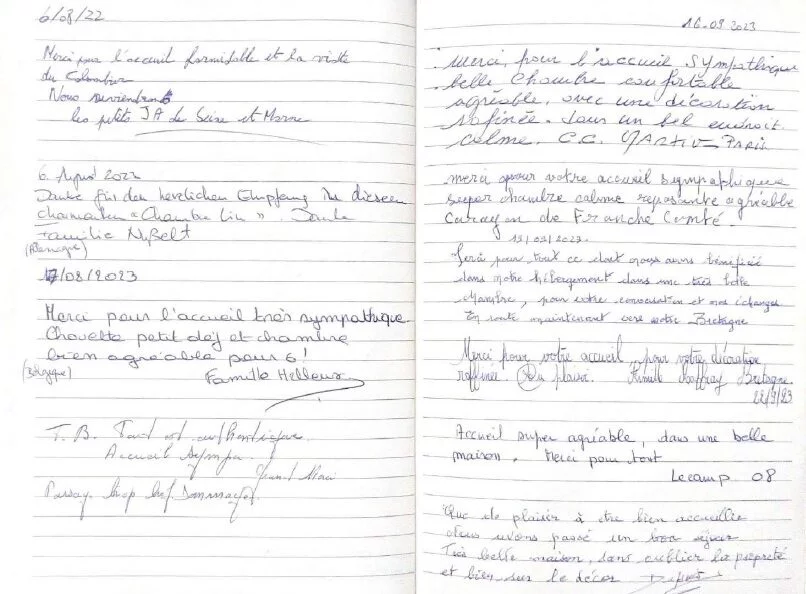 6/08/22
Merci pour l'accueil formidable et la visite
du Colombier
Nous reviendrons
les petits JA de Seine et Marne
6. August 2022
Danke für den herzlichen Empfang in diesem
charmanten "Chambre Lin". Danke
Familie
(Allemagne)
17/08/2023
Merci pour l'accueil très sympathique.
Chouette petit dej et chambre
bien agréable pour 6!
(Belgique)
Famille
T.B. Tout est authentique.
Accueil sympa.
Passage trop bref. Dommage.
16.09 2023
Merci, pour l'accueil sympathique
belle chambre confortable
agréable, avec une décoration
rafinée. Dans un bel endroit
calme. C.C. Paris
merci pour votre accueil sympathique
super chambre calme reposante agréable
de Franche Comté.
Merci pour tout ce dont nous avons bénéficié
dans notre hébergement dans une très belle
chambre, pour votre conversation et nos échanges
En route maintenant vers notre Bretagne
Merci pour votre accueil, pour votre décoration
raffinée. Au plaisir. Famille Bretagne.
22/9/23
Accueil super agréable, dans une belle
maison. Merci pour tout
Lecamp 08
Que de plaisir à être bien accueillis
Nous avons passé un bon séjour
Très belle maison, sans oublier la propreté
et bien sur le décor